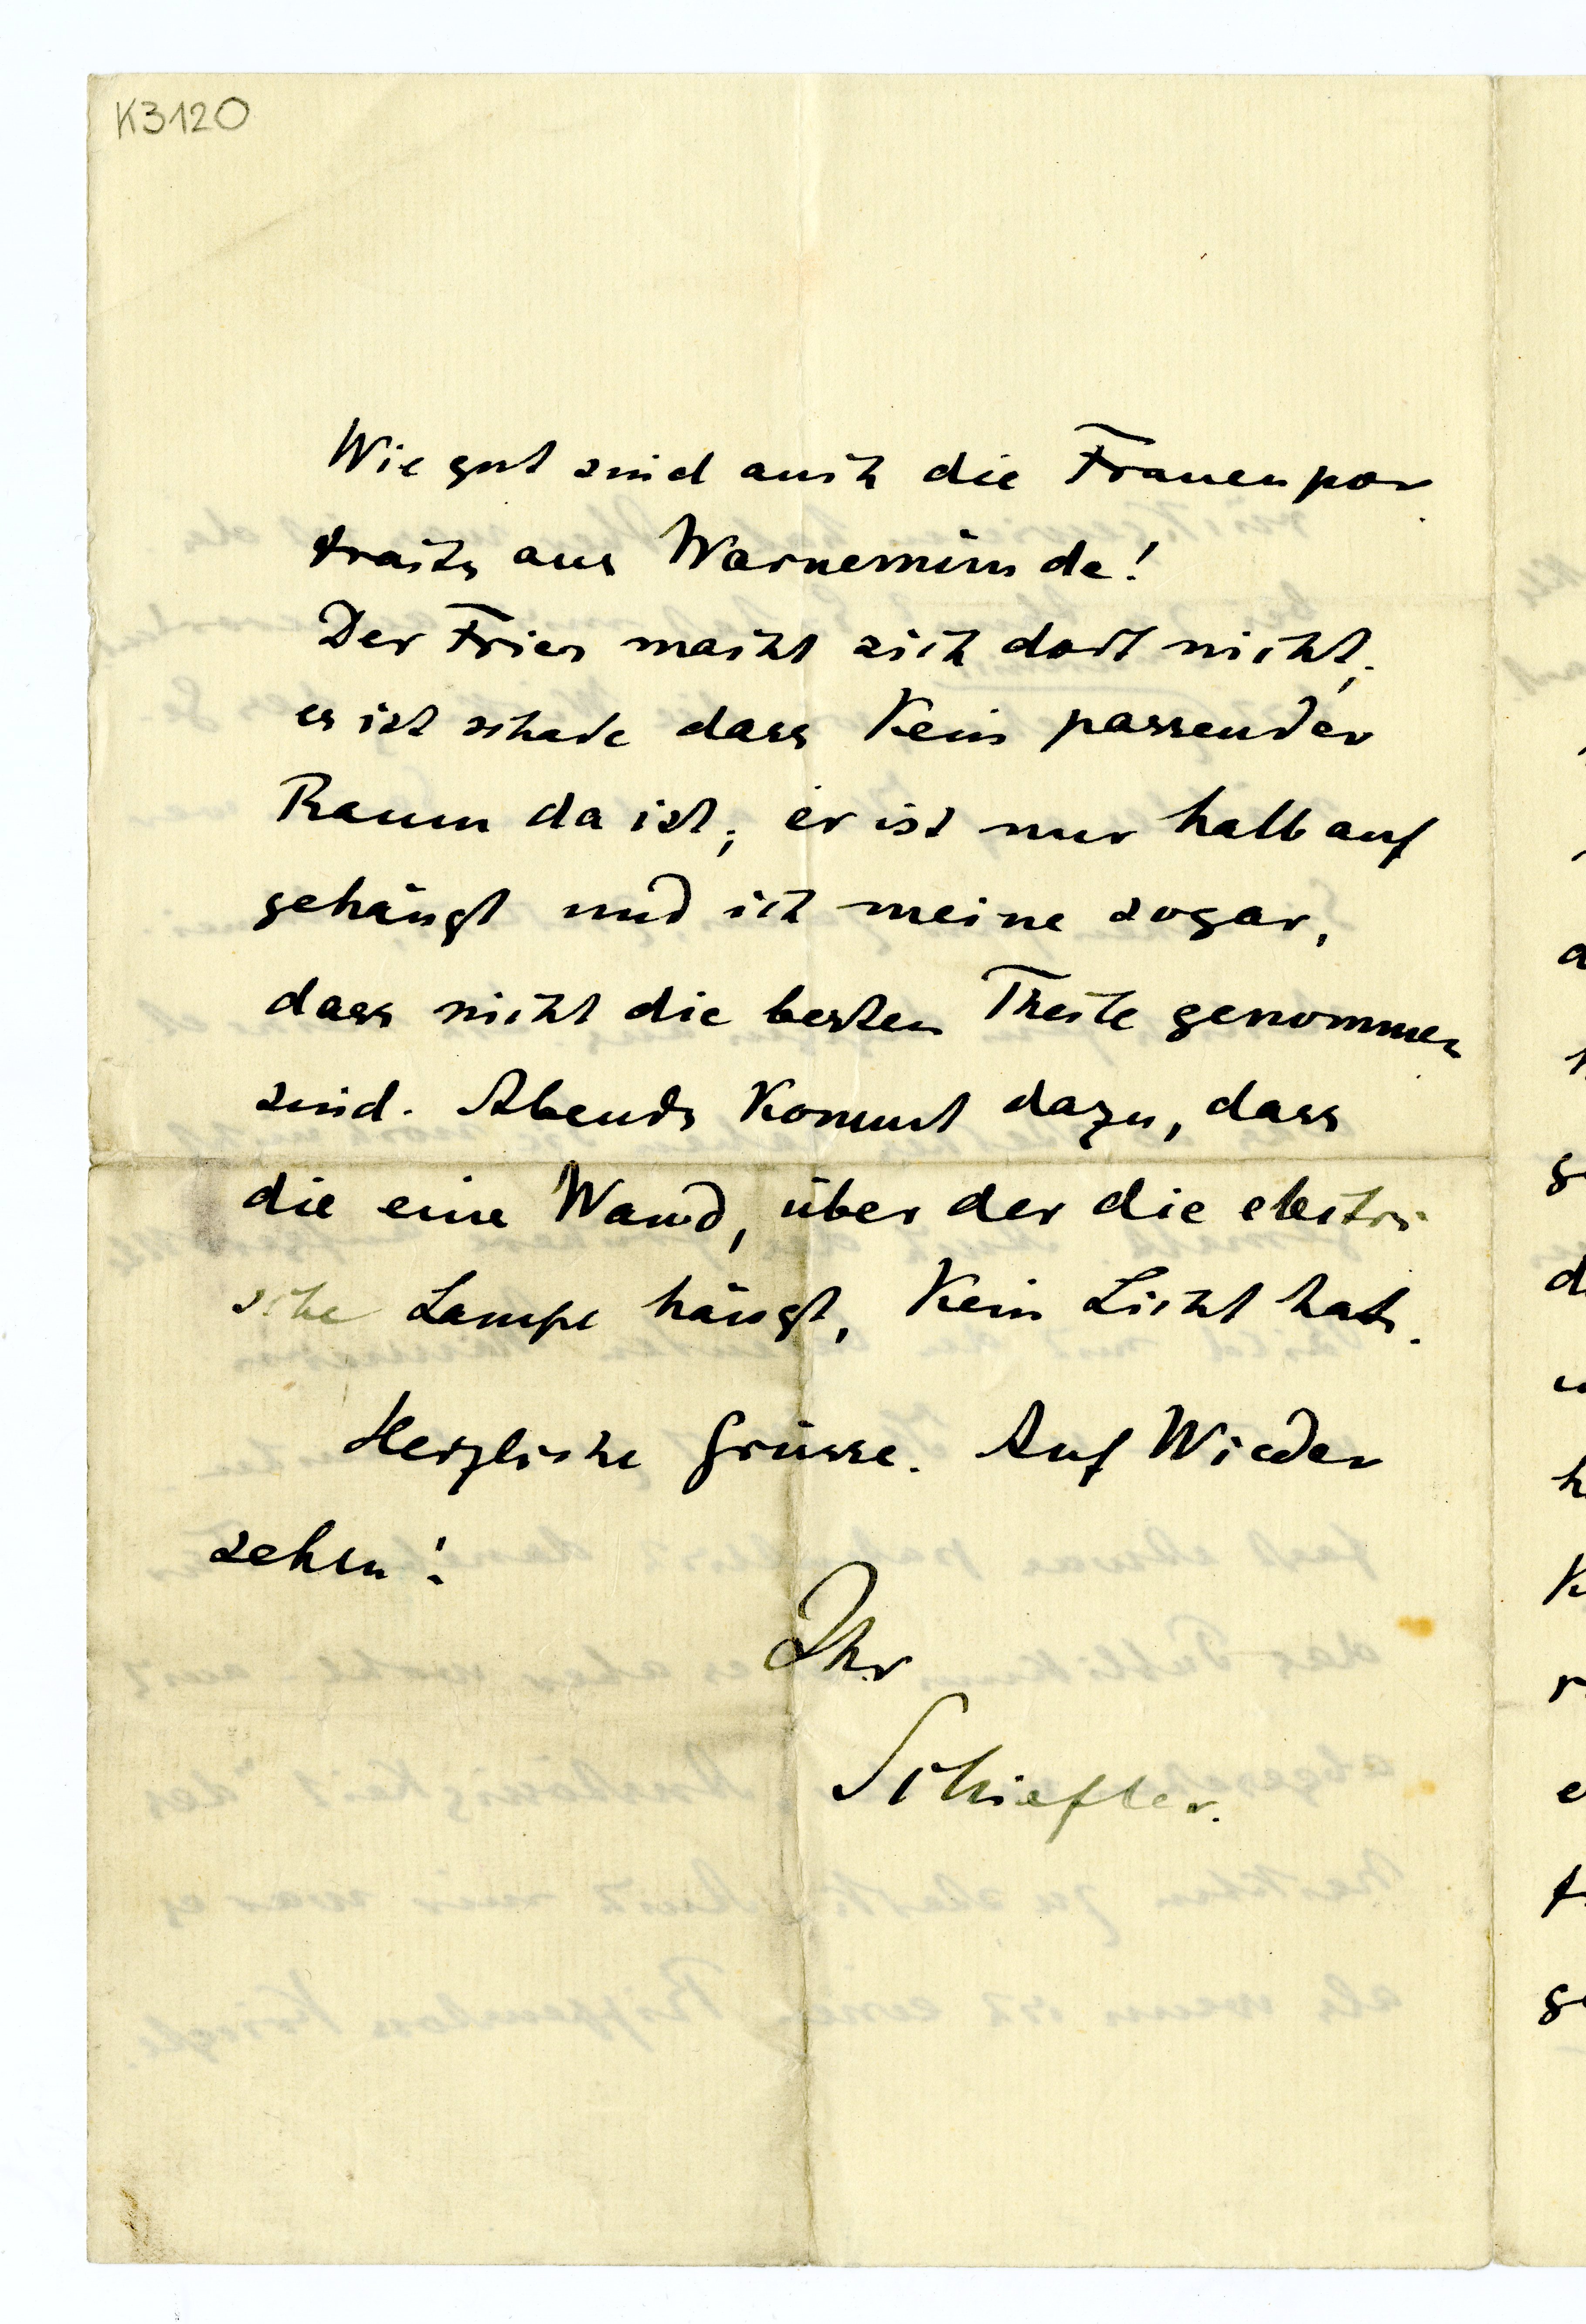 K3120
Wie gut sind auch die Frauenpor
traits aus Warnemünde!
Der Fries macht sich dort nicht;
es ist schade dass kein passender
Raum da ist; er ist nur halb auf
gehängt und ich meine sogar,
dass nicht die besten Theile genommen
sind. Abends kommt dazu, dass
die eine Wand, über der die electri
sche Lampe hängt, kein Licht hat.
Herzliche Grüsse. Auf Wieder
sehen!
Ihr
Schiefler.